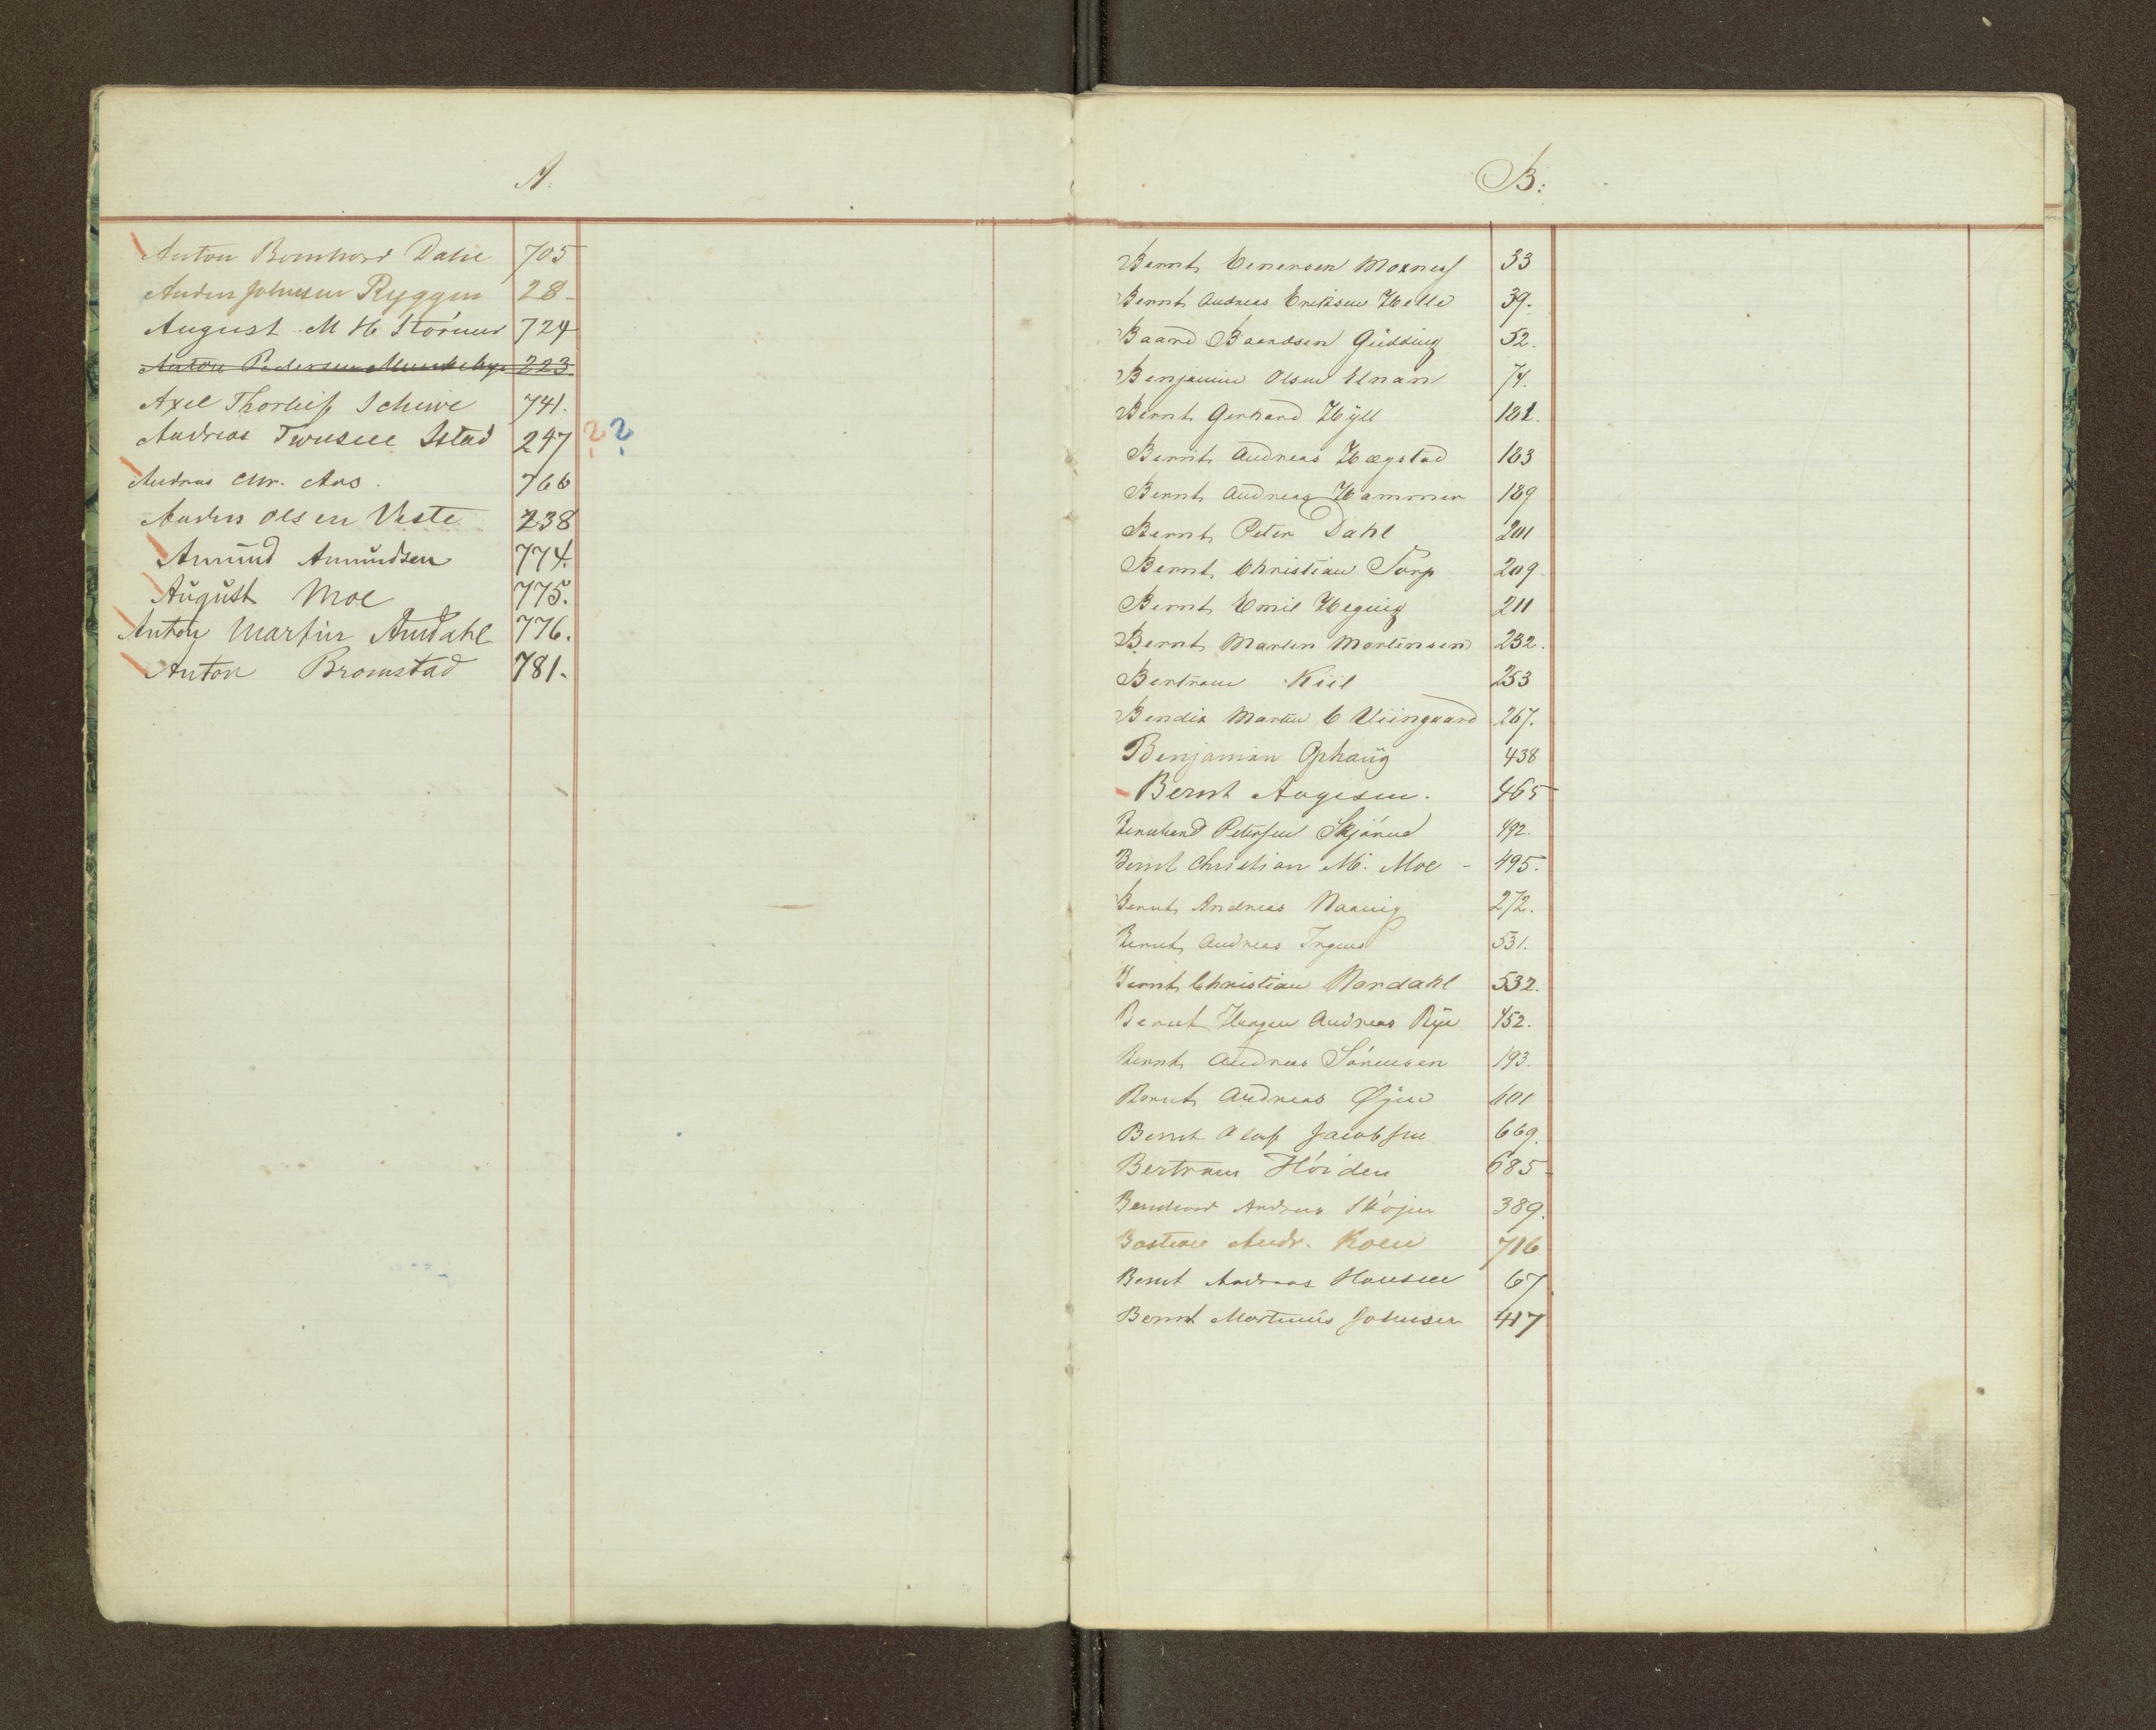 A.
Anton Bernhard Dahl 705
Anders Johnsen Ryggen 28
August M H Störmer 724
Anton Pedersen Munkeby 223
Axel Thorleif Schive 741.
Andreas Iversen Istad 247 ? ?
Andreas Chr. Aas. 766
Anders Olsen Veste 238
Amund Amundsen 774.
August Moe 775.
Anton Martin Amdahl 776.
Anton Bromstad 781.
B:
Bernt Moxnes 33
Bernt Andreas Eriksen Helle 39.
Baard Baardsen Gudding 52.
Benjamin Olsen Elnan 74.
Bernt Gerhard Hÿll 181.
Bernt Andreas Hægstad 183
Bernt Andreas Hammer 189
Bernt Peter Dahl 201
Bernt Christian Torp 209
Bernt Emil Heguig 211
Bernt Martin Mortensen 232.
Bertram Kiil 253
Bendix Martin C Viingaard 267.
Benjamin Ophaug 438
Bernt Aagesen. 465
Bernhard Petersen 492.
Bernt Christian M. Moe - 495.
Bernt Andreas 272.
Bernt Andreas Irgens 531.
Bernt Christian Nordahl 532.
Bernt Andreas Rye 452.
Bernt Andreas Sørensen 193.
Bernt Andreas Øyen 601
Bernt Oluf Jacobsen 669.
Bertram Höiden 685
Bernhard Andreas 389.
Bastian Andr. Koen 716
Bernt Andreas Hansen 67
Bernt Martinus Johnsen 417